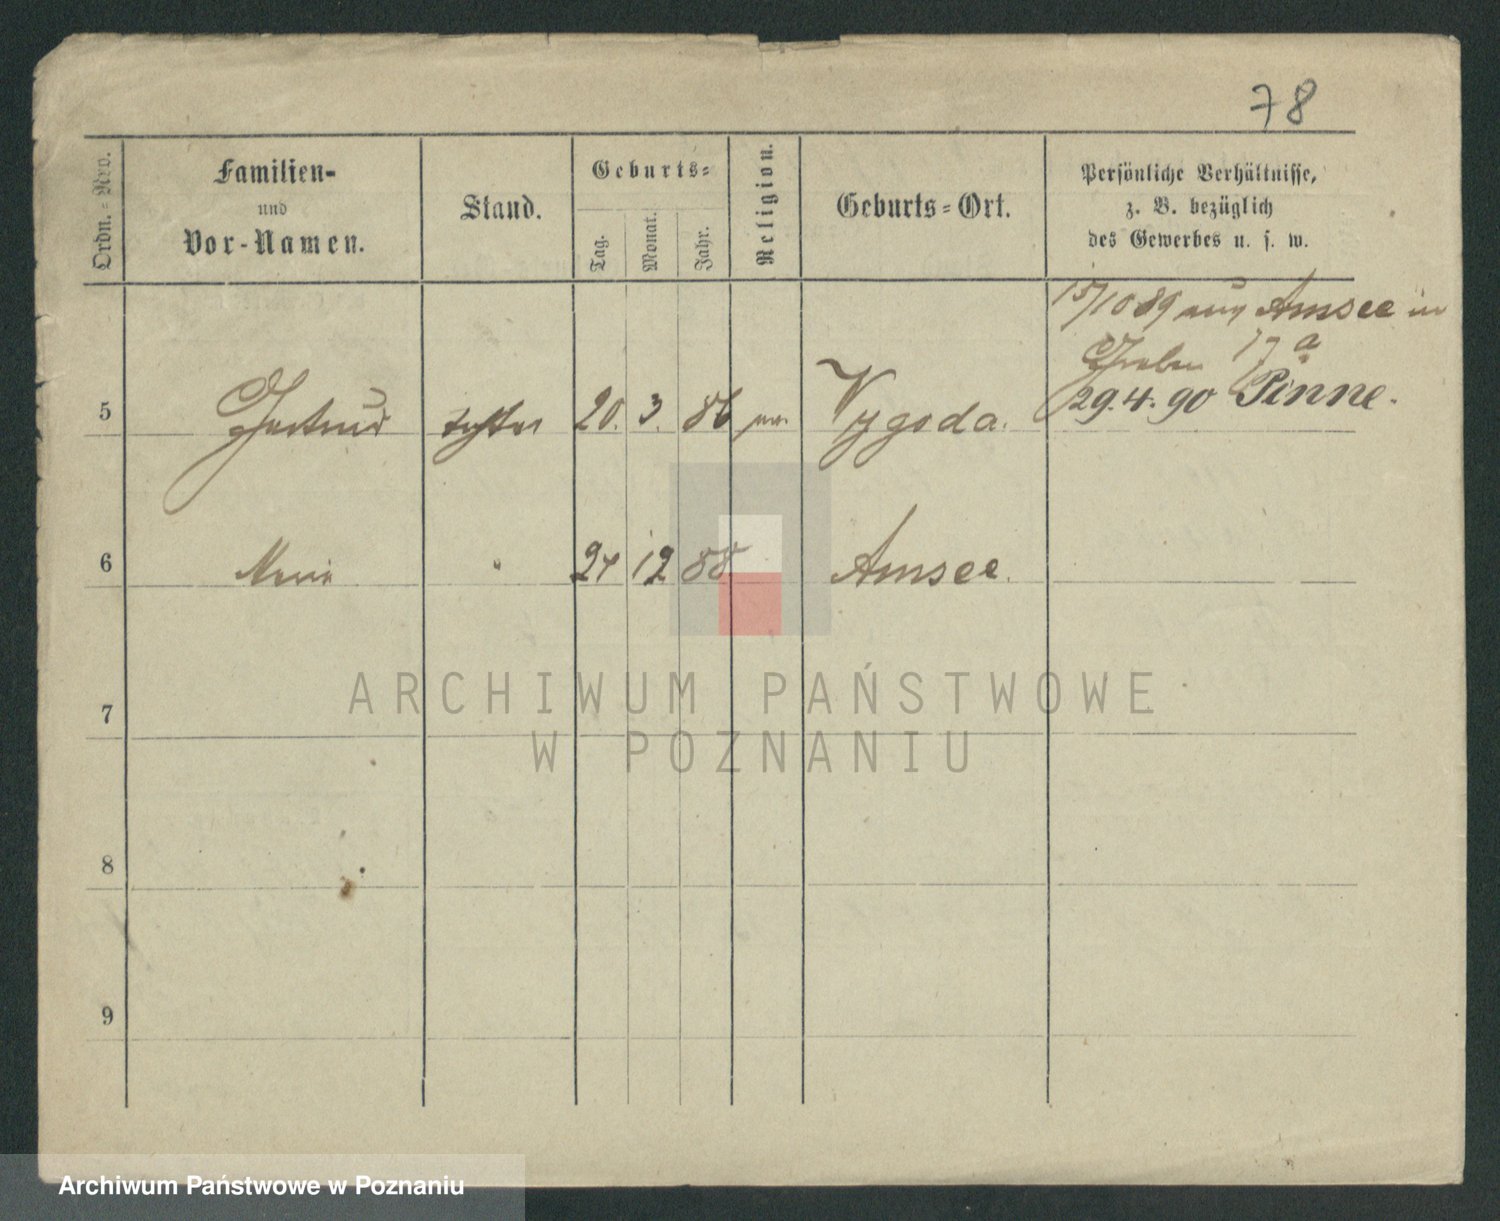 78
Ordn.=Nro.
Familien-
und
Vor-Namen.
Stand.
Geburts=
Tag.
Monat.
Jahr.
Religion.
Geburts=Ort.
Persönliche Verhältnisse,
z. B. bezüglich
des Gewerbes u. s. w.
15/10 89 aus Amsee in
Graben 17 a
29.4.90 Pinne.
5 Gertrud Tochter 20. 3. 86 Wygoda.
6 Marie " 24 12 88 Amsee.
7
8
9
ARCHIWUM PAŃSTWOWE
W POZNANIU
Archiwum Państwowe w Poznaniu